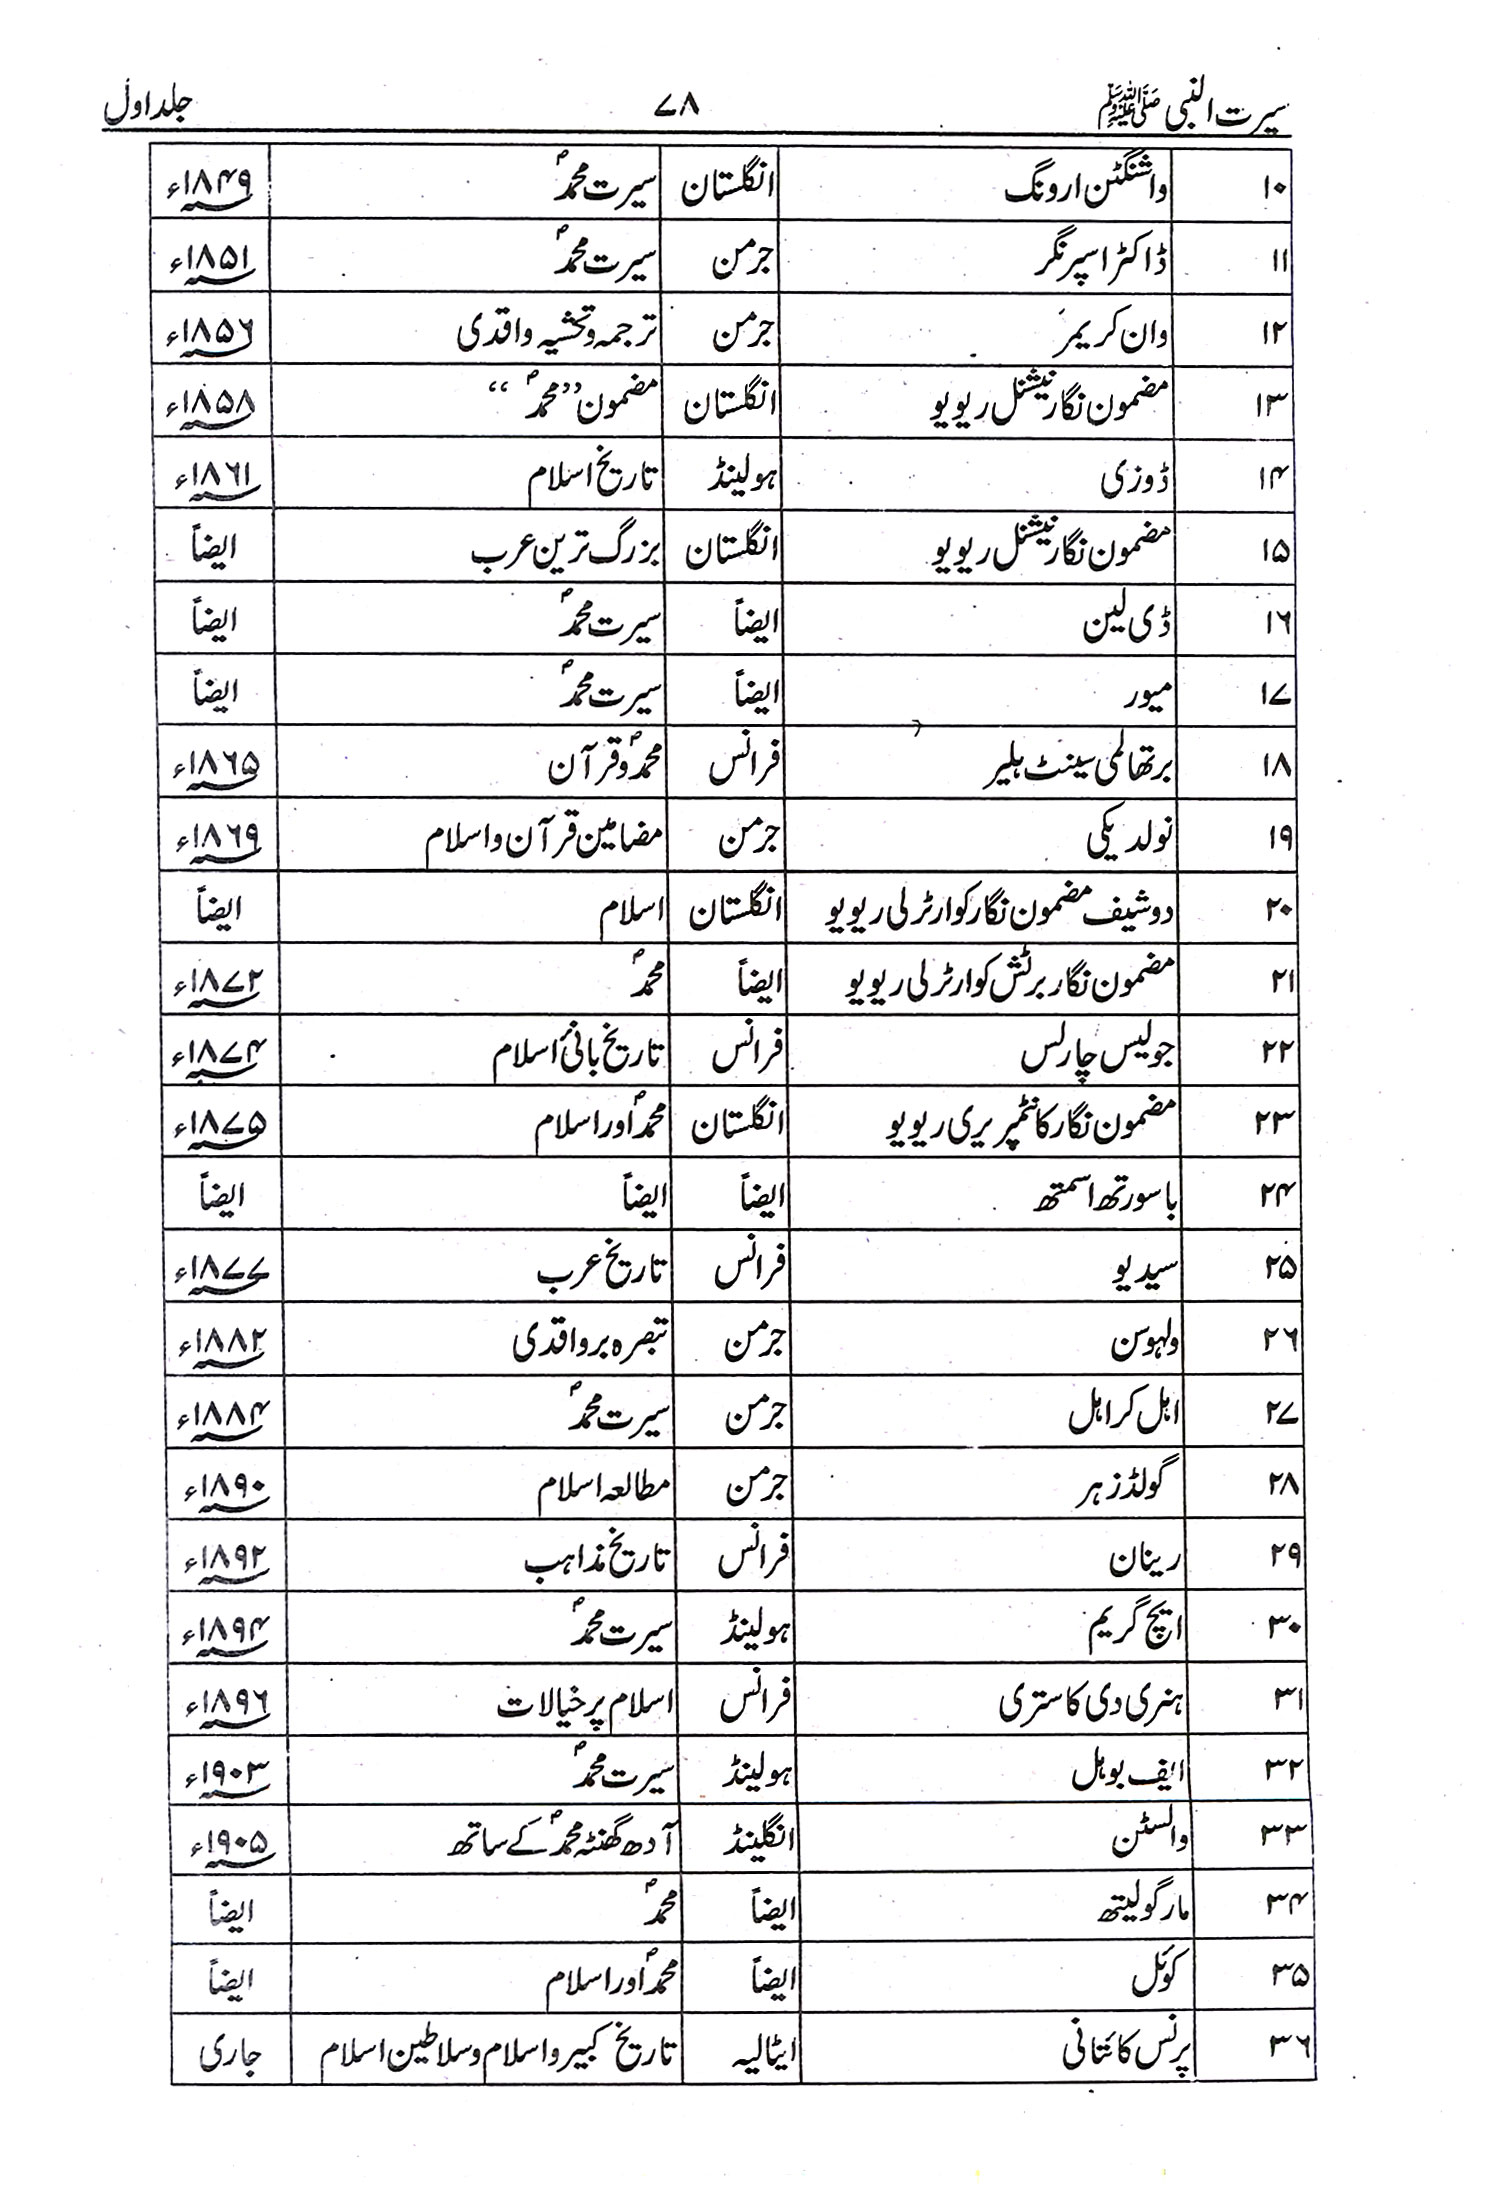 سیرت النبی ﷺ ۷۸ جلد اول
۱۰ واشنگٹن ارونگ انگلستان سیرت محمدؐ ۱۸۴۹ء
۱۱ ڈاکٹر اسپرنگر جرمن سیرت محمدؐ ۱۸۵۱ء
۱۲ وان کریمر جرمن ترجمہ و تحشیہ واقدی ۱۸۵۶ء
۱۳ مضمون نگار نیشنل ریویو انگلستان مضمون ”محمدؐ“ ۱۸۵۸ء
۱۴ ڈوزی ہولینڈ تاریخ اسلام ۱۸۶۱ء
۱۵ مضمون نگار نیشنل ریویو انگلستان بزرگ ترین عرب ایضاً
۱۶ ڈی لین ایضاً سیرت محمدؐ ایضاً
۱۷ میور ایضاً سیرت محمدؐ ایضاً
۱۸ برتھالمی سینٹ ہلیر فرانس محمدؐ و قرآن ۱۸۶۵ء
۱۹ نولدیکی جرمن مضامین قرآن و اسلام ۱۸۶۹ء
۲۰ دوشیف مضمون نگار کوارٹرلی ریویو انگلستان اسلام ایضاً
۲۱ مضمون نگار برٹش کوارٹرلی ریویو ایضاً محمدؐ ۱۸۷۲ء
۲۲ جولیس چارلس فرانس تاریخ بانئ اسلام ۱۸۷۴ء
۲۳ مضمون نگار کانٹمپریری ریویو انگلستان محمدؐ اور اسلام ۱۸۷۵ء
۲۴ باسورتھ اسمتھ ایضاً ایضاً ایضاً
۲۵ سیدیو فرانس تاریخ عرب ۱۸۷۷ء
۲۶ ولہوسن جرمن تبصرہ بر واقدی ۱۸۸۲ء
۲۷ اہل کراہل جرمن سیرت محمدؐ ۱۸۸۴ء
۲۸ گولڈزہر جرمن مطالعہ اسلام ۱۸۹۰ء
۲۹ رینان فرانس تاریخ مذاہب ۱۸۹۲ء
۳۰ ایچ گریم ہولینڈ سیرت محمدؐ ۱۸۹۴ء
۳۱ ہنری دی کاستری فرانس اسلام پر خیالات ۱۸۹۶ء
۳۲ ایف بوہل ہولینڈ سیرت محمدؐ ۱۹۰۳ء
۳۳ والسٹن انگلینڈ آدھ گھنٹہ محمدؐ کے ساتھ ۱۹۰۵ء
۳۴ مارگولیتھ ایضاً محمدؐ ایضاً
۳۵ کوئل ایضاً محمدؐ اور اسلام ایضاً
۳۶ پرنس کائتانی ایٹالیہ تاریخ کبیر و اسلام و سلاطین اسلام جاری